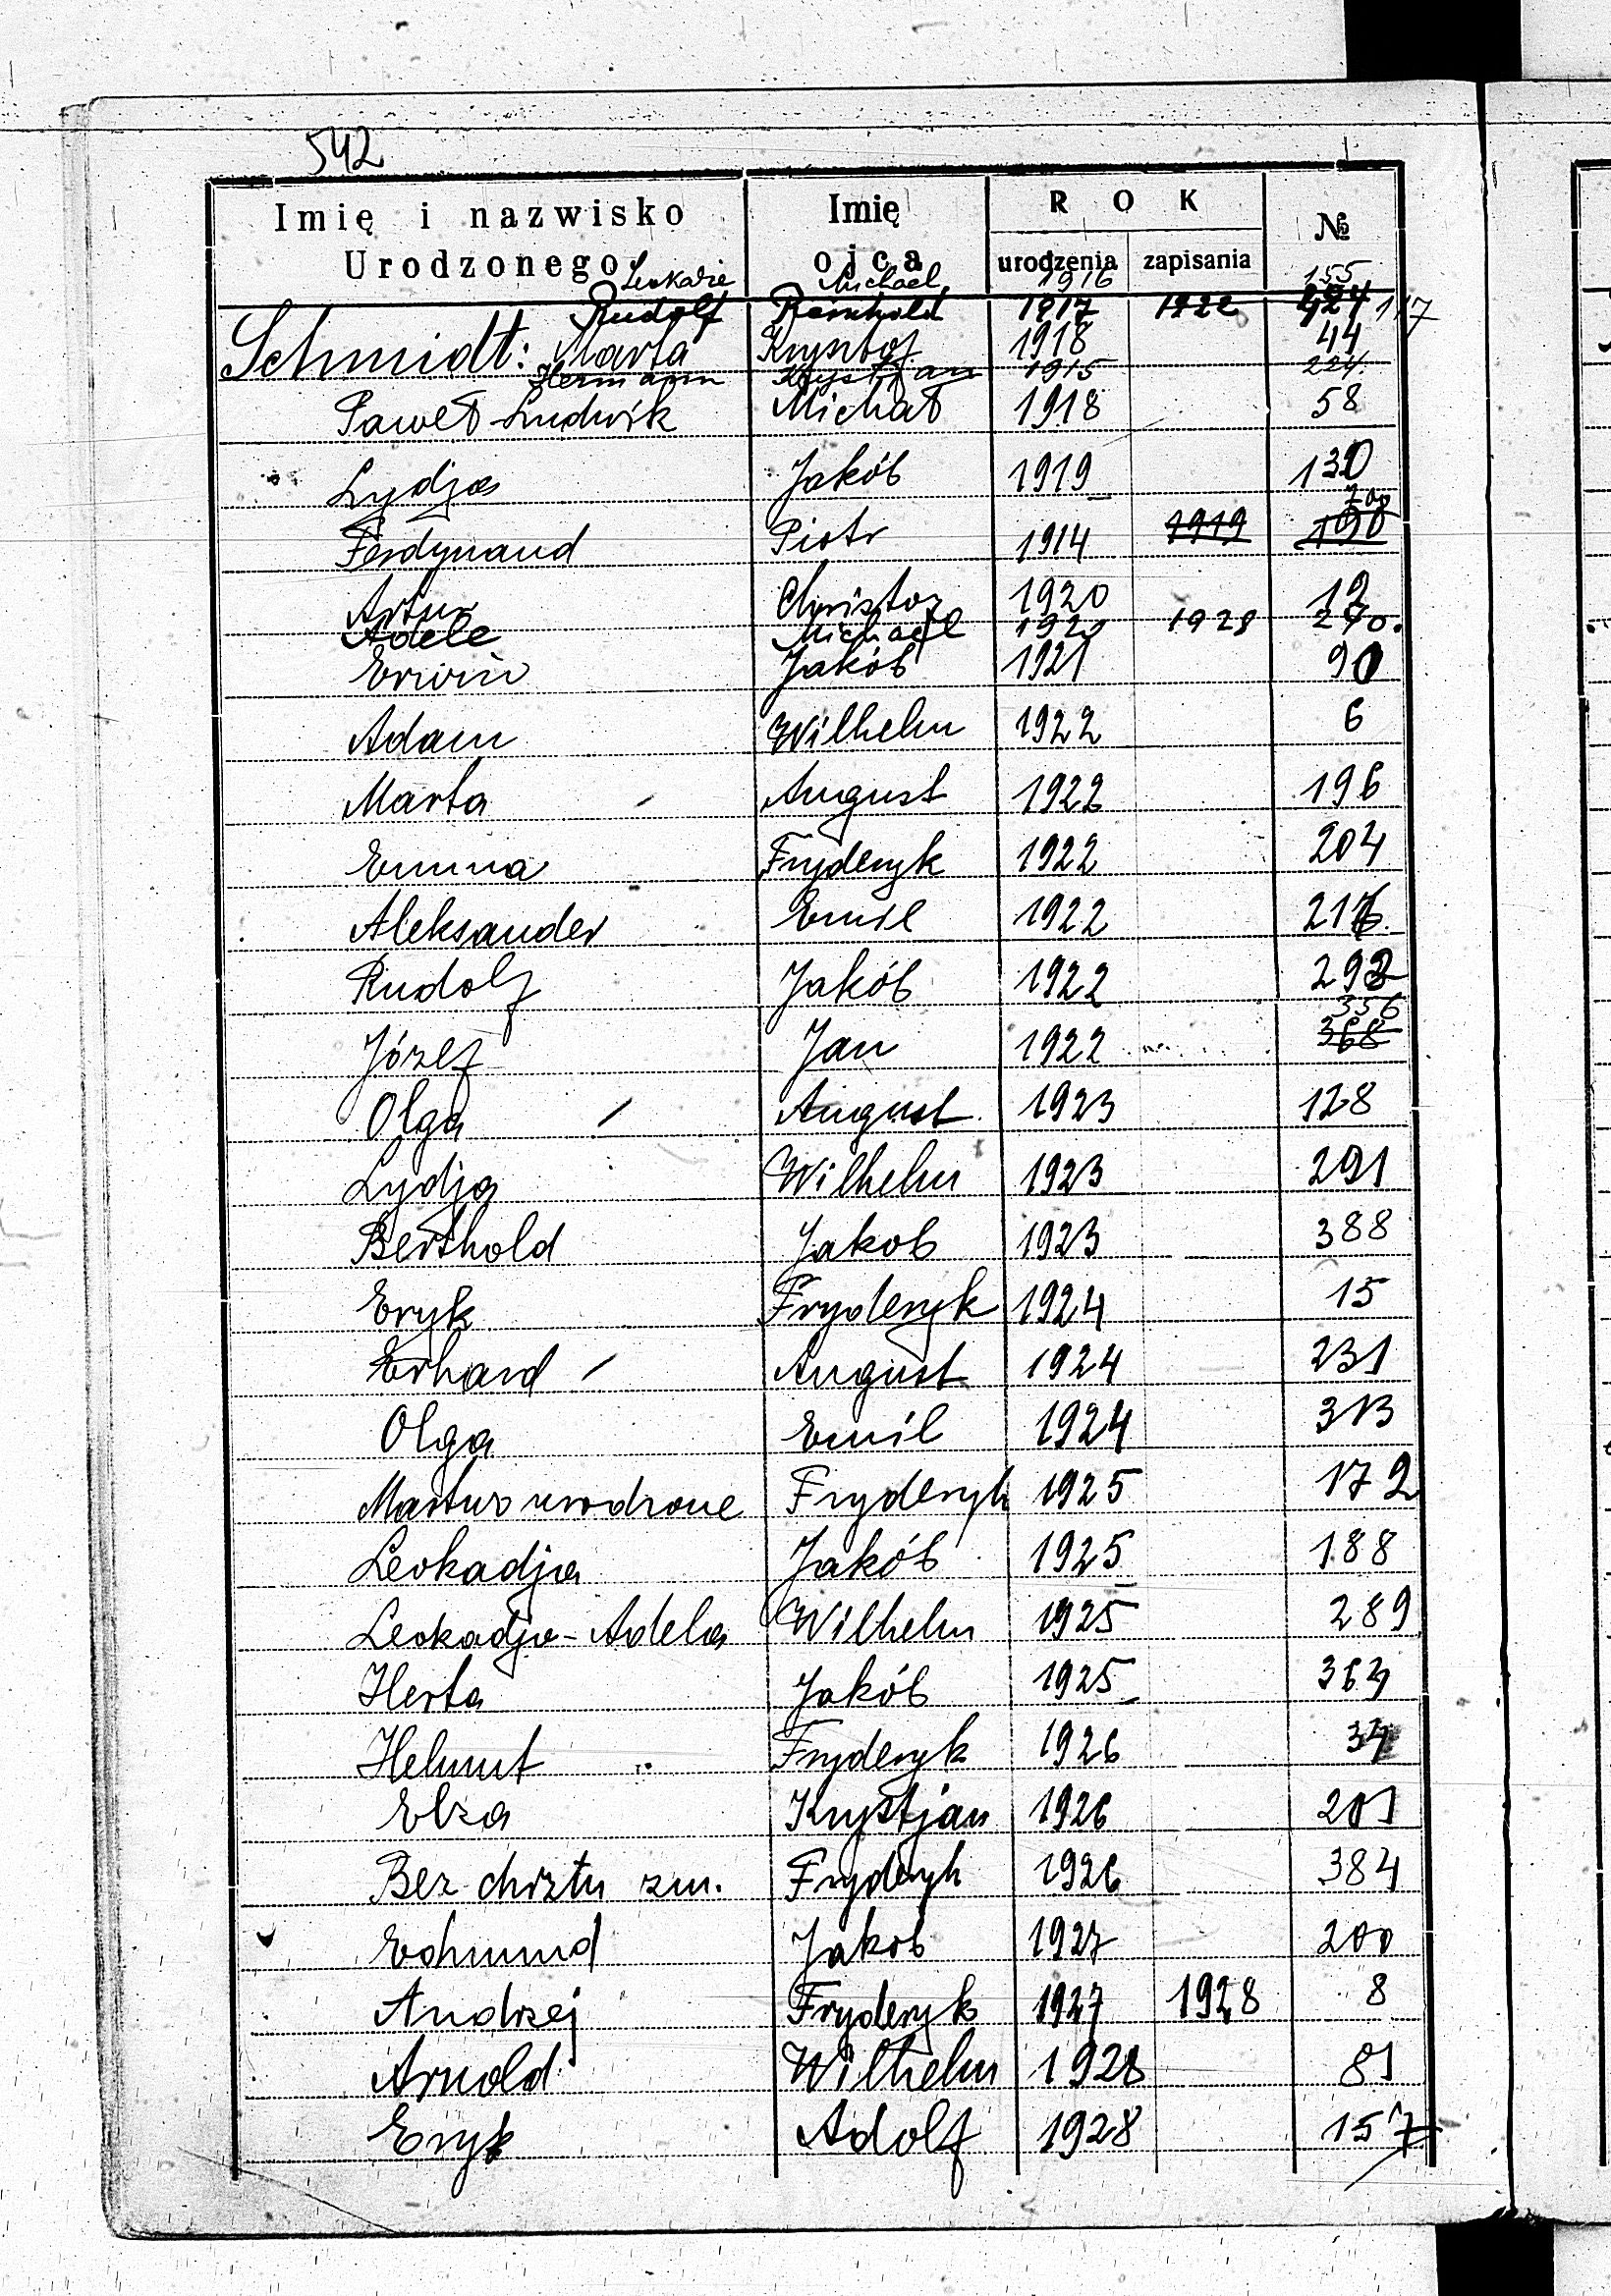 542
Imię i nazwisko Urodzonego Imię ojca ROK urodzenia zapisania №
Leokadie Michael 1916 155
Rudolf Reinhold 1917 1922 117
Schmidt: Marta Krysztof 1918 44
Hermann Krystjan 1915 224
Paweł Ludwik Michał 1918 58
Lydja Jakób 1919 130
200
Ferdynand Piotr 1914 1919 190
Artur Christof 1920 12
Adele Michael 1920 1928 270.
Erwin Jakób 1921 90
Adam Wilhelm 1922 6
Marta August 1922 196
Emma Fryderyk 1922 204
Aleksander Emil 1922 216
Rudolf Jakób 1922 292
356
Józef Jan 1922 368
Olga August 1923 128
Lydja Wilhelm 1923 291
Berthold Jakob 1923 388
Eryk Fryderyk 1924 15
Erhard August 1924 231
Olga Emil 1924 313
Martwo urodzone Fryderyk 1925 172
Leokadja Jakób 1925 188
Leokadja-Adela Wilhelm 1925 289
Herta Jakób 1925 364
Helmut Fryderyk 1926 34
Elza Krystjan 1926 201
Bez chrztu zm. Fryderyk 1926 384
Edmund Jakob 1927 200
Andrzej Fryderyk 1927 1928 8
Arnold Wilhelm 1928 81
Eryk Adolf 1928 157